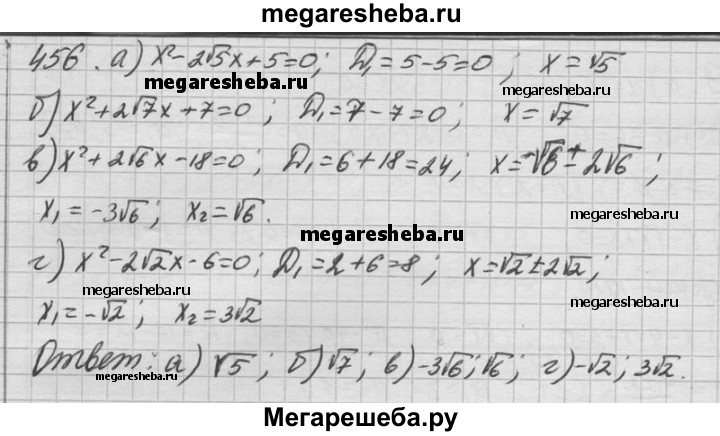 megaresheba.ru
456. а) x² - 2√5x + 5 = 0; D₁ = 5 - 5 = 0; x = √5
megaresheba.ru
megaresheba.ru
б) x² + 2√7x + 7 = 0; D₁ = 7 - 7 = 0; x = √7
в) x² + 2√6x - 18 = 0; D₁ = 6 + 18 = 24; x = -√6 ± 2√6;
x₁ = -3√6; x₂ = √6.
megaresheba.ru
megaresheba.ru
г) x² - 2√2x - 6 = 0; D₁ = 2 + 6 = 8; x = √2 ± 2√2;
megaresheba.ru
x₁ = -√2; x₂ = 3√2
Ответ: а) √5; б) √7; в) -3√6; √6; г) -√2; 3√2.
megaresheba.ru
megaresheba.ru
Мегарешеба.ру